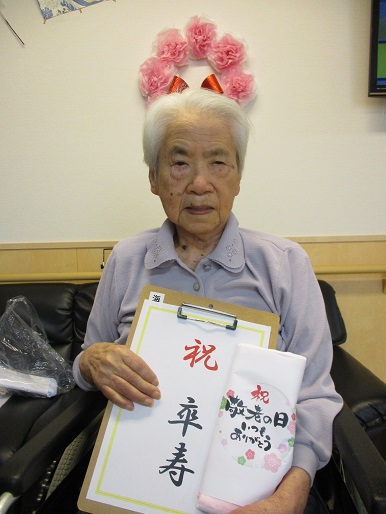 海
祝
卒寿
祝
敬老の日
いつも
ありがとう